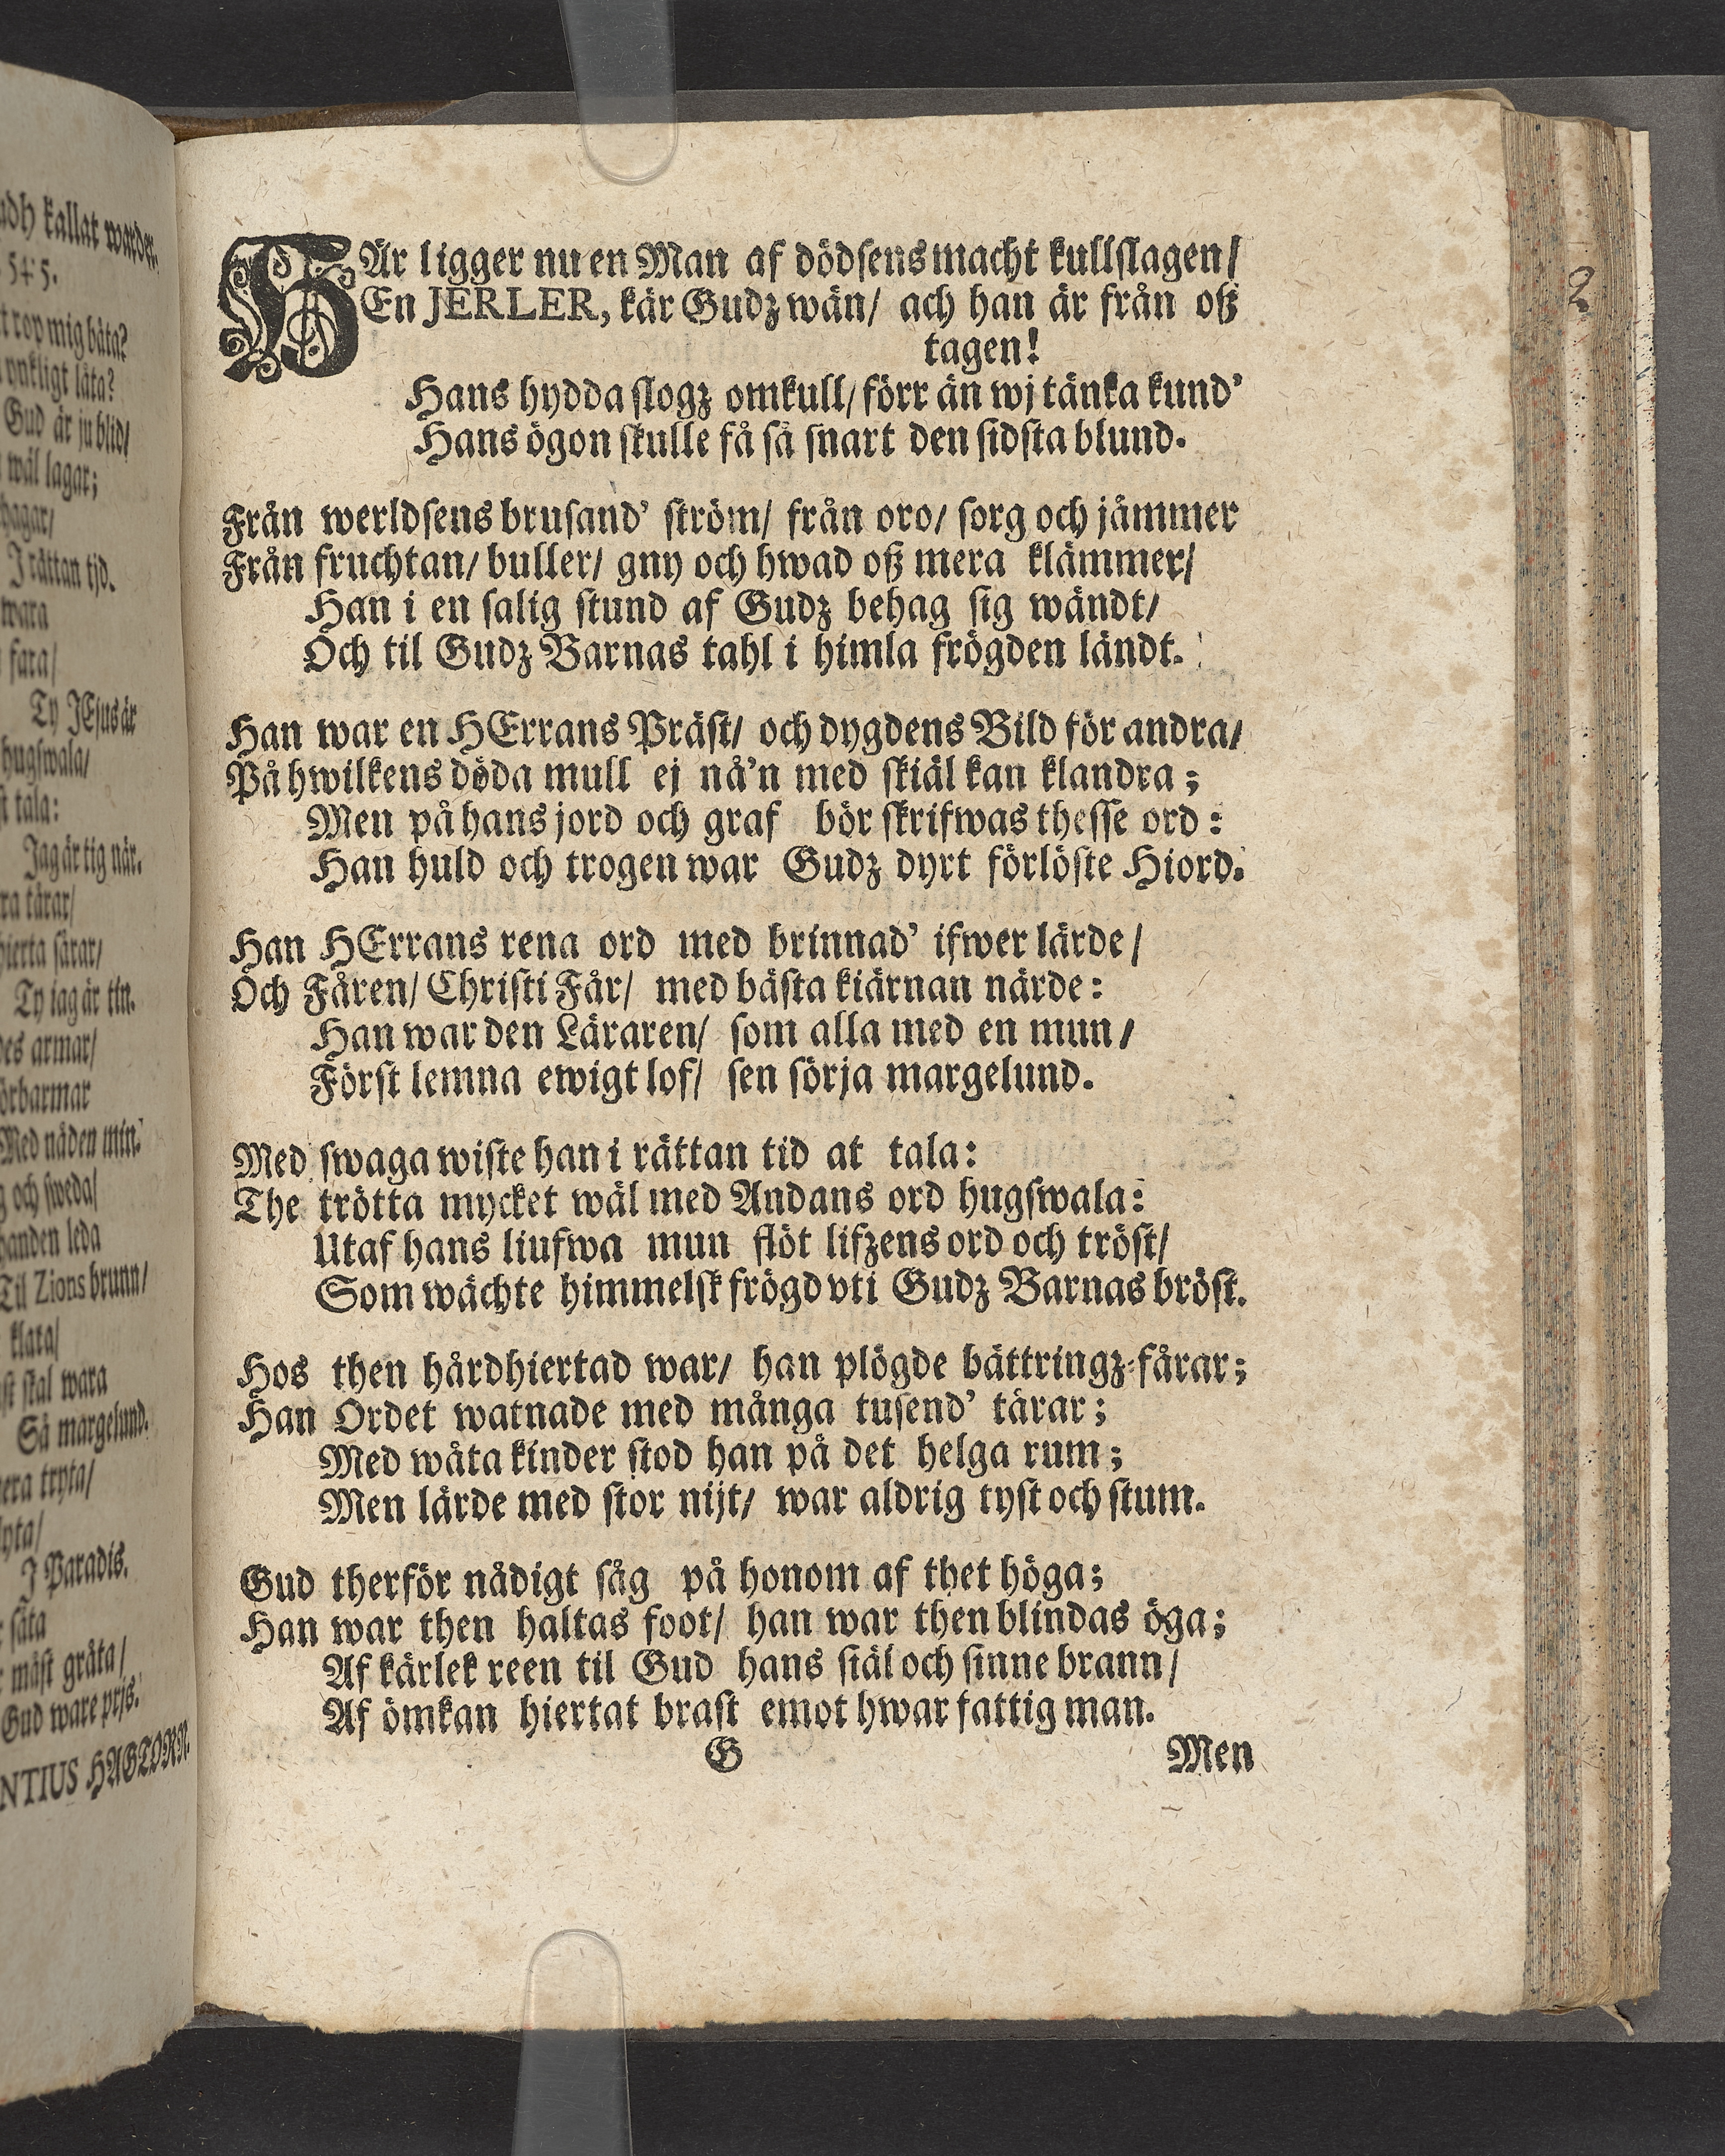 adh kallat warder.
545.
trop mig båta?
ynkligt låta?
Gud är ju blid/
wäl lagar;
hagar/
J rättan tjd.
wara
fara/
Ty JEsus är
hugswala/
tala:
Jag är tig när.
ra tårar/
hierta sårar/
Ty jag är tin.
des armar/
örbarmar
Med nåden min.
g och sweda/
handen leda
Til Zions brunn/
klara/
st skal wara
Så margelund.
era tryta/
lyta/
J Paradis.
såta
mäst gråta/
Gud ware prjs.
NTIUS HAGTORN.
HÄr ligger nu en Man af dödsens macht kullslagen/
En JERLER, kär Gudz wän/ ach han är från oß
tagen!
Hans hydda slogz omkull/ förr än wj tänka kund'
Hans ögon skulle få så snart den sidsta blund.
Från werldsens brusand' ström/ från oro/ sorg och jämmer
Från fruchtan/ buller/ gny och hwad oß mera klämmer/
Han i en salig stund af Gudz behag sig wändt/
Och til Gudz Barnas tahl i himla frögden ländt.
Han war en HErrans Präst/ och dygdens Bild för andra/
På hwilkens döda mull ej nå'n med skiäl kan klandra;
Men på hans jord och graf bör skrifwas thesse ord:
Han huld och trogen war Gudz dyrt förlöste Hiord.
Han HErrans rena ord med brinnad' ifwer lärde/
Och Fåren/ Christi Får/ med bästa kiärnan närde:
Han war den Läraren/ som alla med en mun/
Först lemna ewigt lof/ sen sörja margelund.
Med swaga wiste han i rättan tid at tala:
The trötta mycket wäl med Andans ord hugswala:
Utaf hans liufwa mun flöt lifzens ord och tröst/
Som wächte himmelsk frögd vti Gudz Barnas bröst.
Hos then hårdhiertad war/ han plögde bättringz-fårar;
Han Ordet watnade med många tusend' tårar;
Med wåta kinder stod han på det helga rum;
Men lärde med stor nijt/ war aldrig tyst och stum.
Gud therför nådigt såg på honom af thet höga;
Han war then haltas foot/ han war then blindas öga;
Af kärlek reen til Gud hans siäl och sinne brann/
Af ömkan hiertat brast emot hwar fattig man.
G Men
2